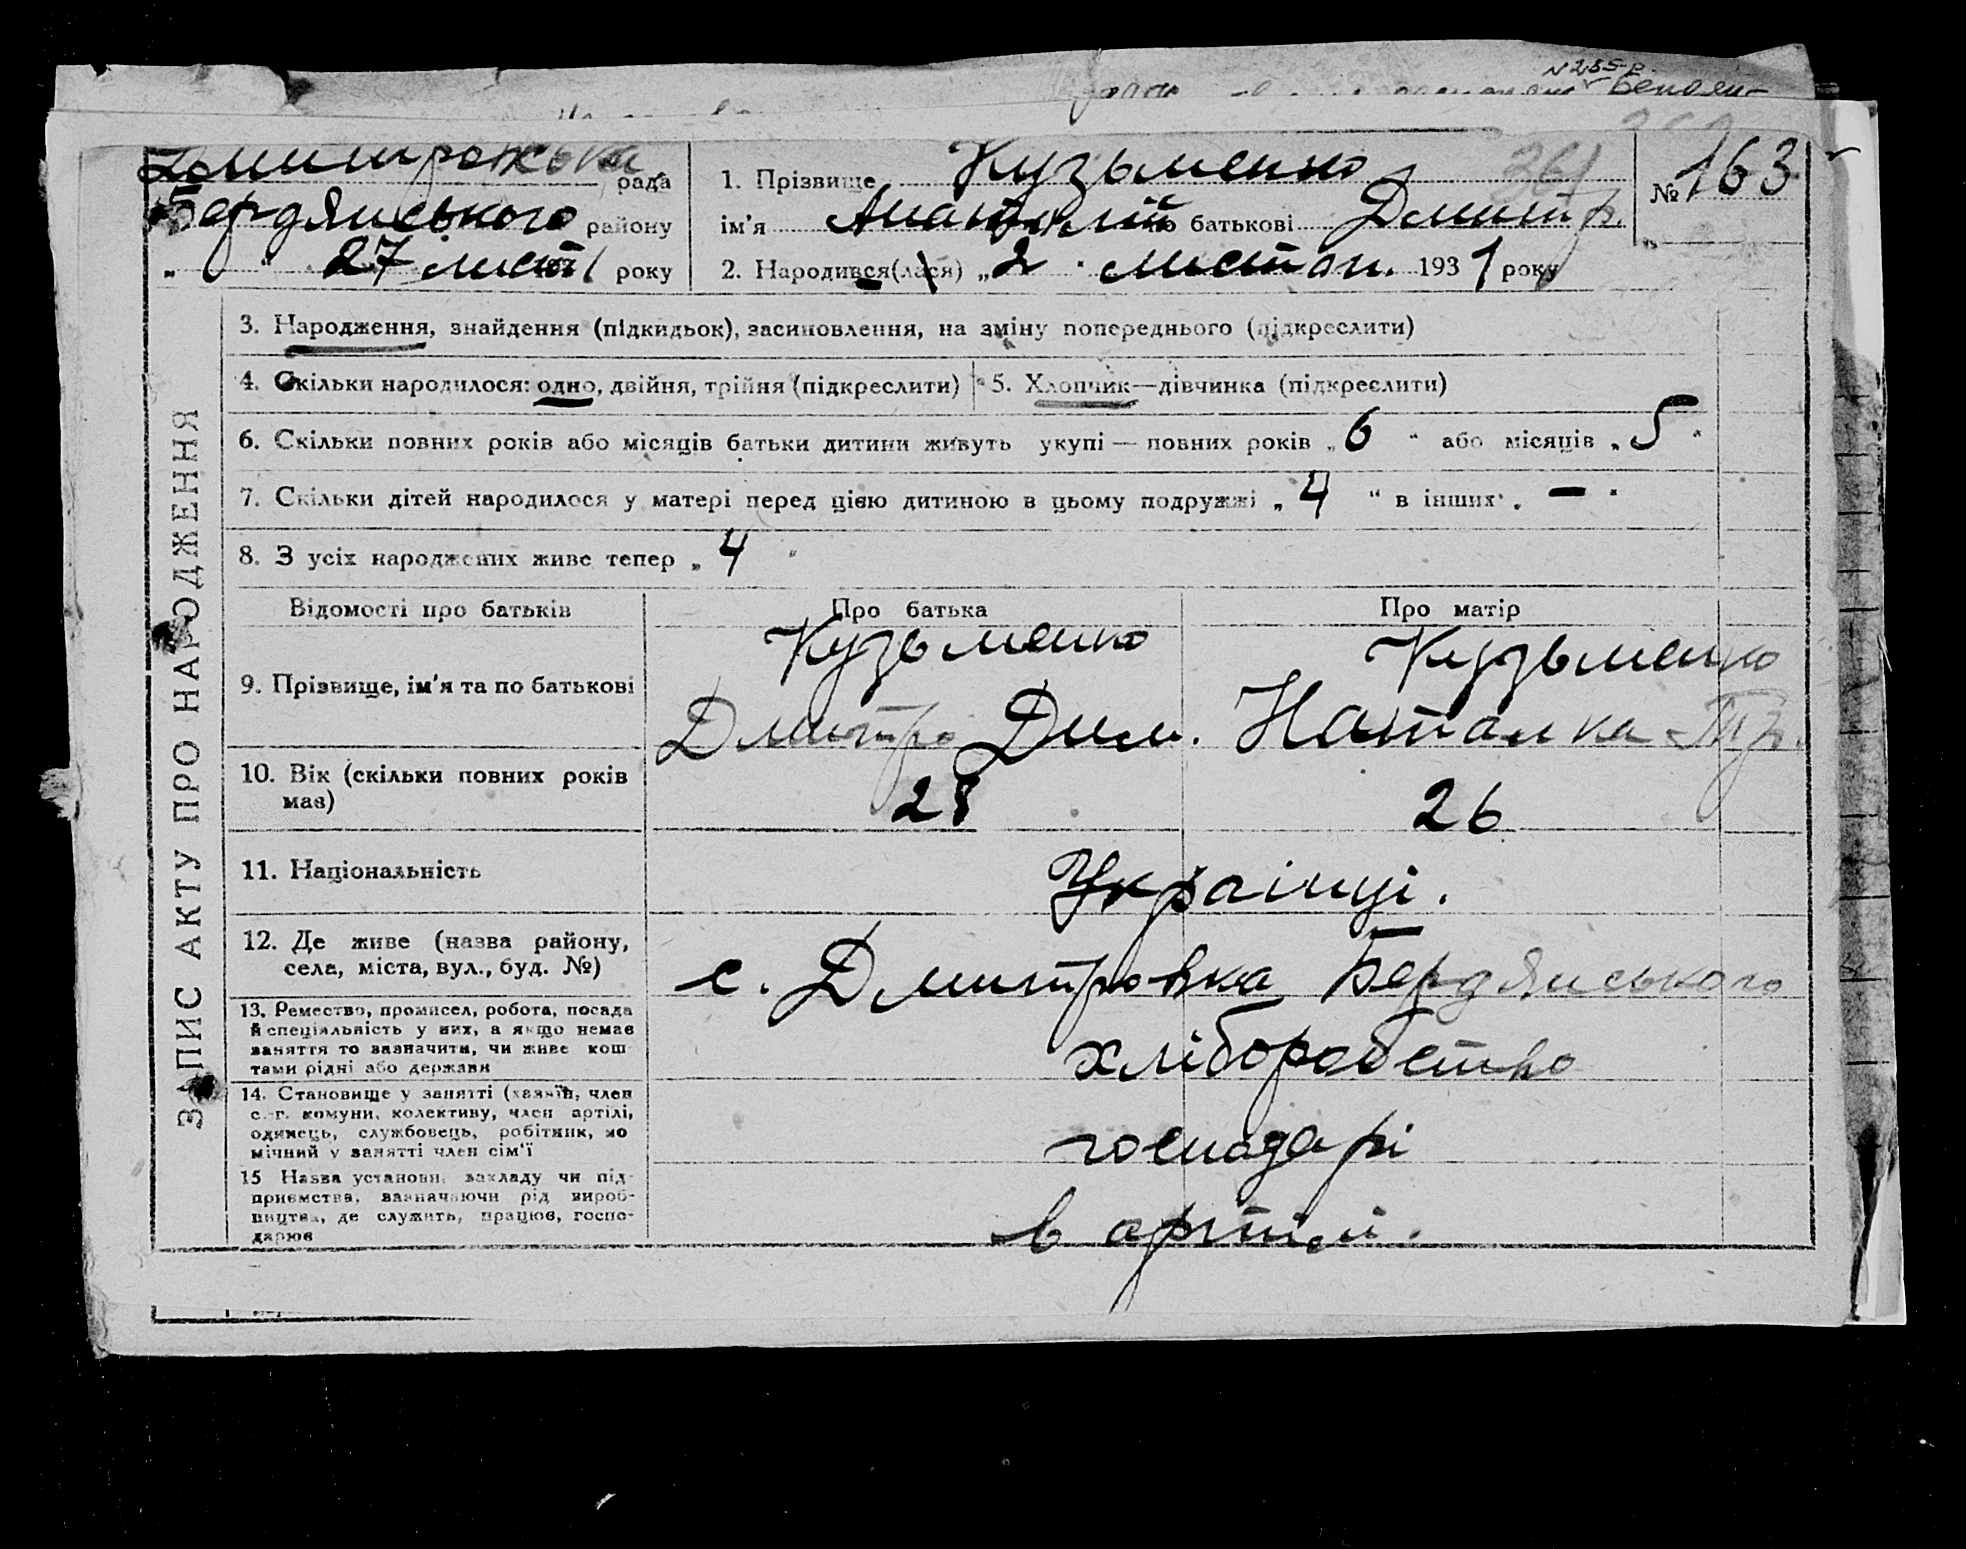 N 285-р.
Дмитровська рада
Бердянського району
„ “ 27 лист 1 року
1. Прізвище Кузьменко
ім'я Анатолій по батькові Дмитр.
2. Народився(лася) „2“ листоп. 1931 року
361
№ 163
ЗАПИС АКТУ ПРО НАРОДЖЕННЯ
3. Народження, знайдення (підкидьок), засиновлення, на зміну попереднього (підкреслити)
4. Скільки народилося: одно, двійня, трійня (підкреслити)
5. Хлопчик—дівчинка (підкреслити)
6. Скільки повних років або місяців батьки дитини живуть укупі — повних років „6“ або місяців „5“
7. Скільки дітей народилося у матері перед цією дитиною в цьому подружжі „4“ в інших „—“
8. З усіх народжених живе тепер „4“
Відомості про батьків Про батька Про матір
9. Прізвище, ім'я та по батькові
Кузьменко
Дмитро Дим.
Кузьменко
Наталка Тр.
10. Вік (скільки повних років
має)
28 26
11. Національність
Українці.
12. Де живе (назва району,
села, міста, вул., буд. №)
с. Дмитровка Бердянського
13. Ремество, промисел, робота, посада
й спеціяльність у них, а якщо немає
заняття то зазначити, чи живе кош-
тами рідні або держави
хліборобство
14. Становище у занятті (хазяїн, член
с.-г. комуни, колективу, член артілі,
одинець, службовець, робітник, по
мічний у занятті член сім'ї
господарі
15 Назва установи, закладу чи під-
приємства, зазначаючи рід вироб-
ництва, де служить, працює, госпо-
дарює
в артілі.